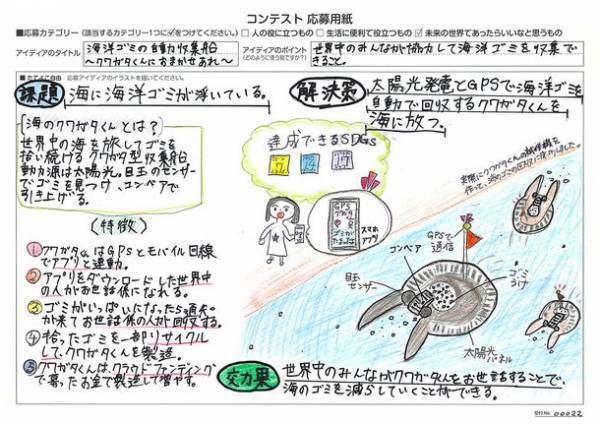 コンテスト 応募用紙
■応募カテゴリー（該当するカテゴリー1つに☑をつけてください。） □ 人の役に立つもの □ 生活に便利で役立つもの ☑ 未来の世界であったらいいなと思うもの
アイディアのタイトル
海洋ゴミの自動収集船
～クワガタくんにおまかせあれ～
アイディアのポイント
世界中のみんなが協力して海洋ゴミを収集で
きること。
課題
海に海洋ゴミが浮いている。
解決策
太陽光発電とGPSで海洋ゴミを
自動で回収するクワガタくんを
海に放つ。
海のクワガタくんとは？
世界中の海を旅してゴミを
拾い続けるクワガタ型収集船
動力源は太陽光。目玉のセンサー
でゴミを見つけ、コンベアで
引き上げる。
（特徴）
① クワガタくんはGPSとモバイル回線
でアプリと連動。
② アプリをダウンロードした世界中
の人がお世話係になれる。
③ ゴミがいっぱいになったら通知
が来てお世話係の人が回収する。
④ 拾ったゴミを一部リサイクル
して、クワガタくんを製造。
⑤ クワガタくんは、クラウドファンディング
で募ったお金で製造して増やす。
達成できるSDGs
7 14 17
GPS
スマホ
アプリ
実際にクワガタくんの試作機を
GPSで
通信
コンベア
目玉
センサー
ゴミ
太陽光
パネル
効果
世界中のみんながクワガタくんをお世話することで、
海のゴミを減らしていくことができる。
00022